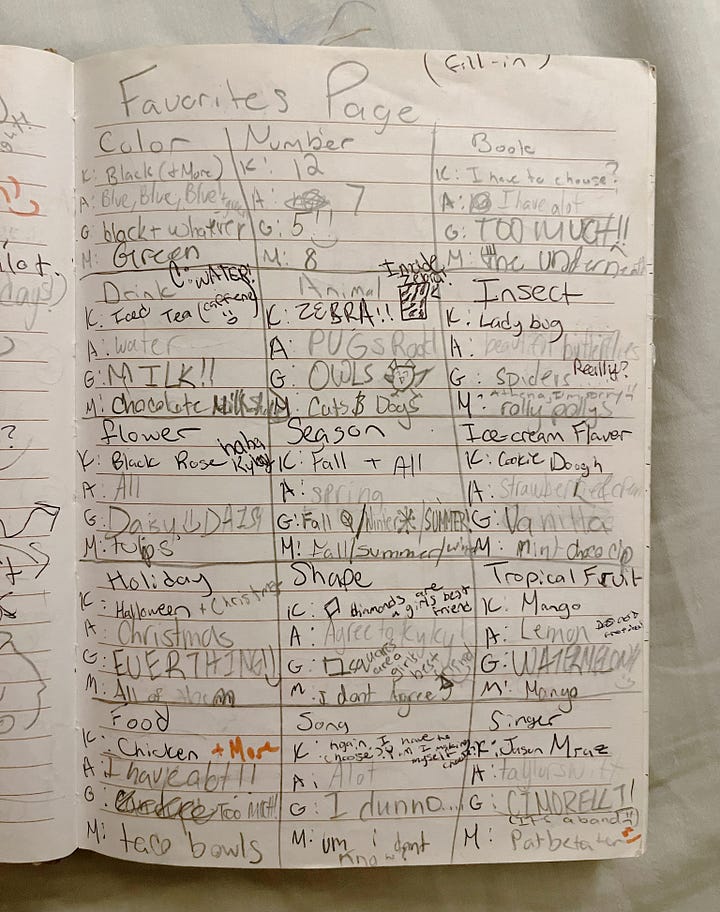 (fill-in)
Favorites Page
Color
K: Black (+More)
A: Blue, Blue, Blue
G: black + whatever
M: Green
Number
K: 12
A: 7
G: 5!!
M: 8
Book
K: I have to choose?
A: I have alot
G: TOO MUCH!!
M: the underneath
Drink
C: WATER!
K: Iced Tea (caffene)
A: water
G: MILK!!
M: Chocolate Milkshake
Animal
Inside Zebra!
K: ZEBRA!!
A: PUGS Rock!
G: OWLS
M: Cats & Dogs
Insect
K: Ladybug
A: beautiful butterflies
G: spiders Really?
M: rolly pollys
flower
K: Black Rose haha Kyky
A: All
G: Daisy DAISY
M: tulips
Season
K: Fall + All
A: spring
G: Fall /Winter /SUMMER
M: Fall/summer/wint
Ice-cream Flavor
K: Cookie Doough
A: Strawberries
G: Vanilla
M: mint choco clp
Holiday
K: Halloween + Christmas
A: Christmas
G: EVERYTHING!!
M: All of them
Shape
K: dimonds are a girls best friend
A: Agree to Kyky!
G: squares are a girls best friend
M: I dont Agree
Tropical Fruit
K: Mango
A: Lemon
G: WATERMELON!!
M: Mango
Food
K: Chicken + More
A: I have alot!!
G: Too MUCH!
M: taco bowls
Song
K: Again, I have to choose? I'm making myself choose
A: Alot
G: I dunno...
M: um i dont know?
Singer
K: Jason Mraz
A: taylor swift
G: CIMORELLI!
(It's a band)
M: Patbetatar
alot.
days!)